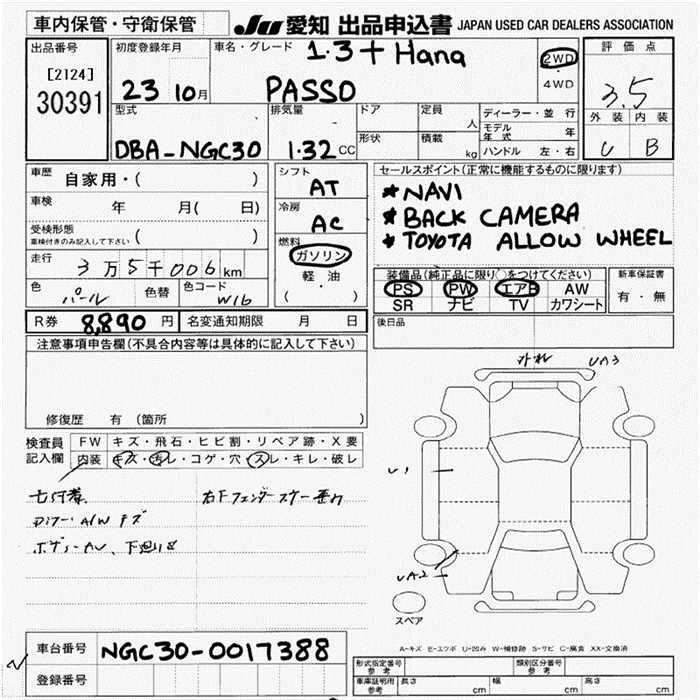 車内保管・守衛保管 JU 愛知 出品申込書 JAPAN USED CAR DEALERS ASSOCIATION
出品番号 初度登録年月 車名・グレード 1.3+Hana 2WD 評価点
[2124] 4WD
30391 23 10月 PASSO 3.5
型式 排気量 ドア 定員 人 ディーラー・並行 外装 内装
モデル年式 年
DBA-NGC30 1.32 CC 形状 積載 kg ハンドル 左・右 C B
車歴 自家用・( ) シフト AT セールスポイント(正常に機能するものに限ります)
車検 年 月( 日) 冷房 AC *NAVI
受検形態 *BACK CAMERA
車検付きのみ記入して下さい ( ) 燃料 *TOYOTA ALLOW WHEEL
走行 3万5千006km ガソリン
色 パール 色替 色コード W16 軽・油 ( ) 装備品(純正品に限り○をつけてください) 新車保証書
PS PW エアB AW 有・無
SR ナビ TV カワシート
R券 8,890円 名変通知期限 月 日 後日品
注意事項申告欄(不具合内容等は具体的に記入して下さい)
修復歴 有 (箇所 )
検査員記入欄 FW キズ・飛石・ヒビ割・リペア跡・X要
内装 キズ・汚レ・コゲ・穴・スレ・キレ・破レ
外れ UA3
U1
UA2
スペア
A-キズ E-エクボ U-凹み W-補修跡 S-サビ C-腐食 XX-交換済
車台番号 NGC30-0017388
登録番号
型式指定番号 参考 類別区分番号 参考
車庫証明用 参考 長さ cm 幅 cm 高さ cm